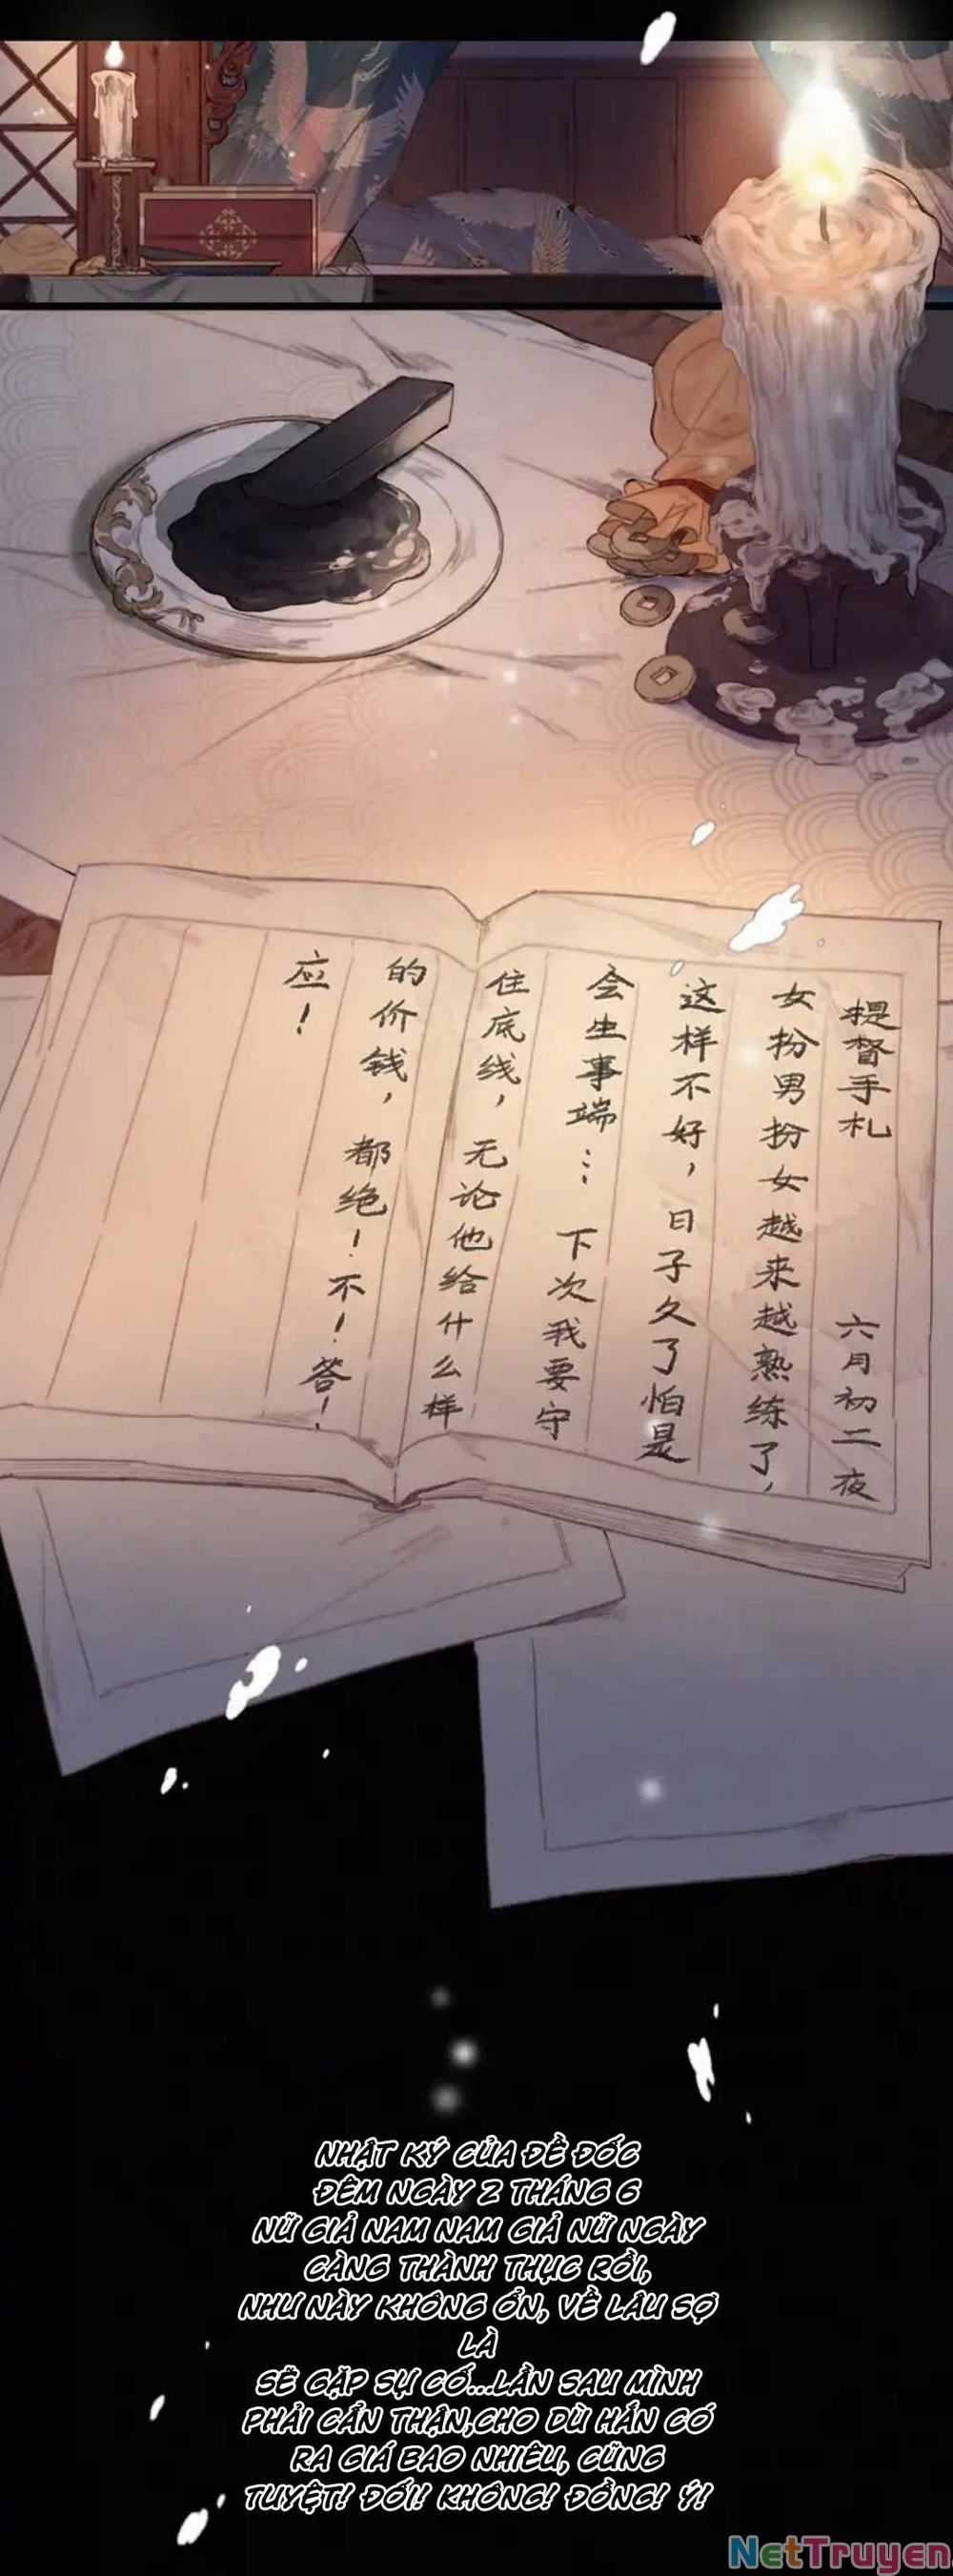 提督手札 六月初二夜
女扮男扮女越来越熟练了，
这样不好，日子久了怕是
会生事端… 下次我要守
住底线，无论他给什么样
的价钱，都绝！不！答！
应！
NHẬT KÝ CỦA ĐỀ ĐỐC
ĐÊM NGÀY 2 THÁNG 6
NỮ GIẢ NAM NAM GIẢ NỮ NGÀY
CÀNG THÀNH THỤC RỒI,
NHƯ NÀY KHÔNG ỔN, VỀ LÂU SỢ
LÀ
SẼ GẶP SỰ CỐ...LẦN SAU MÌNH
PHẢI CẨN THẬN,CHO DÙ HẮN CÓ
RA GIÁ BAO NHIÊU, CŨNG
TUYỆT! ĐỐI! KHÔNG! ĐỒNG! Ý!
NetTruyen